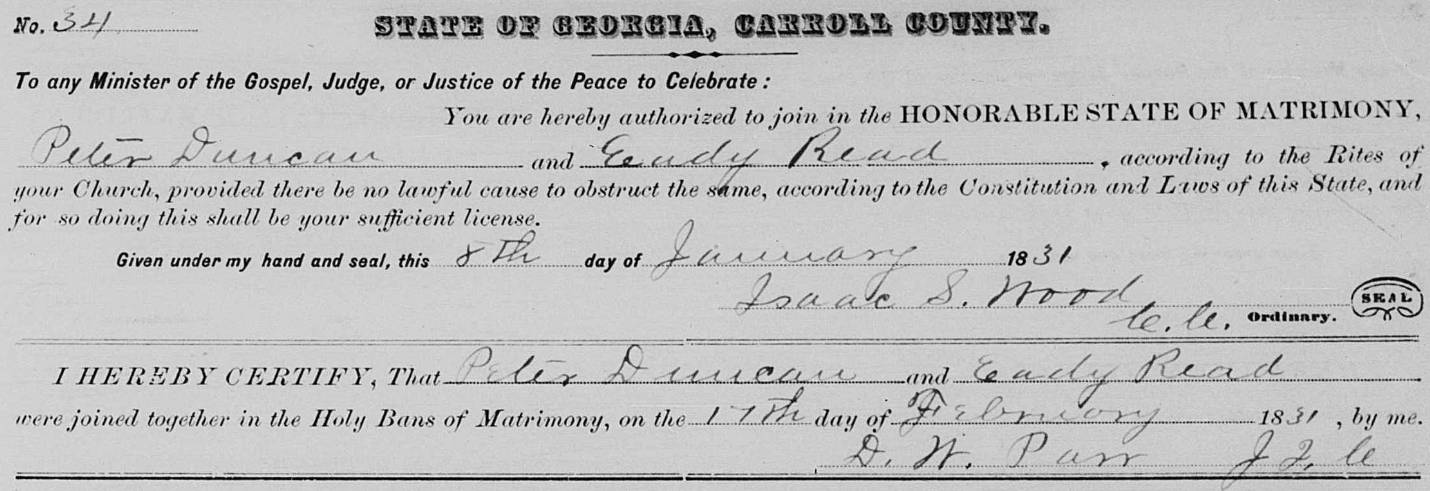 No. 34 STATE OF GEORGIA, CARROLL COUNTY.
To any Minister of the Gospel, Judge, or Justice of the Peace to Celebrate:
You are hereby authorized to join in the HONORABLE STATE OF MATRIMONY,
Peter Duncan and Eady Read, according to the Rites of
your Church, provided there be no lawful cause to obstruct the same, according to the Constitution and Laws of this State, and
for so doing this shall be your sufficient license.
Given under my hand and seal, this 8th day of January 1831
Isaac S. Wood SEAL
C.C. Ordinary.
I HEREBY CERTIFY, That Peter Duncan and Eady Read
were joined together in the Holy Bans of Matrimony, on the 17th day of February 1831, by me.
D. W. Parr J I C